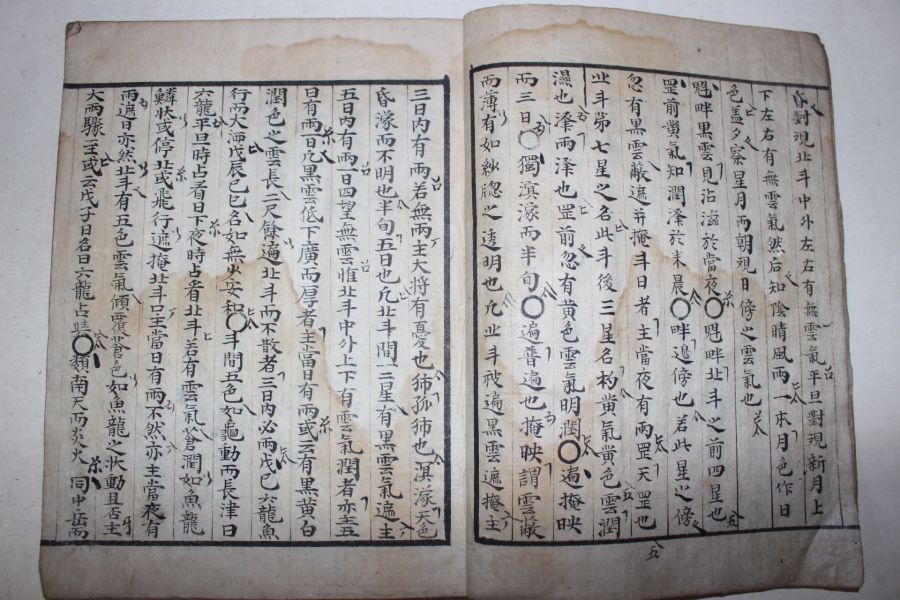 昏對現北斗中外左右有無雲氣平旦對現新月上
下左右有無雲氣然后知陰晴風雨一來月色作日
色盖夕察星月雨朝現日傍之雲氣也
魁畔黑雲見沾滋於當夜〇魁畔北斗之前四星也
罡前黄氣知潤澤於来晨〇畔邉傍也若此星之傍
忽有黒雲蔽遮并掩斗日者主當夜有雨罡天罡也
此斗苐七星之名此斗後三星名杓黄氣黄色雲潤
濕也澤雨澤也罡前忽有黄色雲氣明潤〇遍掩映
雨三日〇獨滇濛而半旬〇遍普遍也掩映謂雲蔽
而薄有如紗䆫之透明也凢北斗被遍黒雲遮掩主
三日内有雨若無雨主大將有憂也 孤 也滇濛天色
昏濛而不明也半旬五日也凢北斗間三星有黒雲氣遮主
五日内有雨一四望無雲惟北斗中外上下有雲氣潤者亦主五
日有雨一凢黒雲低下廣而厚者主當日有雨或云有黒黄白
潤色之雲長二尺餘遍北斗而不散者三日内必雨戊巳六龍魚
行而大海戊辰巳巳名如無火安和〇斗間五色如龜動而長津日
六龍平旦時占看日下夜時占看北斗若有雲氣蒼潤如魚龍
鱗状或停北或飛行遮掩北斗口主當日有雨不然亦主當夜有
雨遮日亦然北斗有五色雲氣傾覆蒼色如魚龍之状動且否主
大雨驟至或云戊子日名曰六龍占 〇頼南天而炎火 同中岳而
五